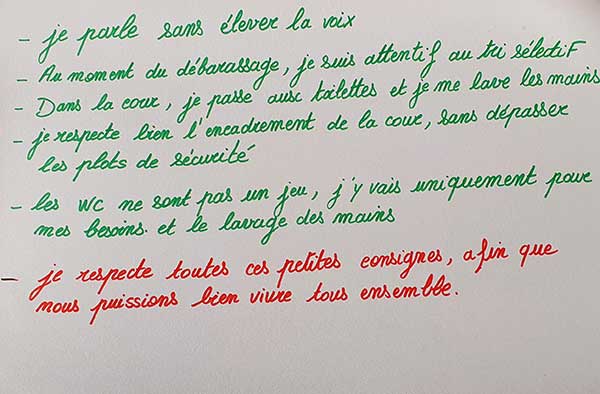 - je parle sans élever la voix
- Au moment du débarassage, je suis attentif au tri sélectif
- Dans la cour, je passe aux toilettes et je me lave les mains
- je respecte bien l'encadrement de la cour, sans dépasser
les plots de sécurité
- les WC ne sont pas un jeu, j'y vais uniquement pour
mes besoins. et le lavage des mains
- je respecte toutes ces petites consignes, afin que
nous puissions bien vivre tous ensemble.